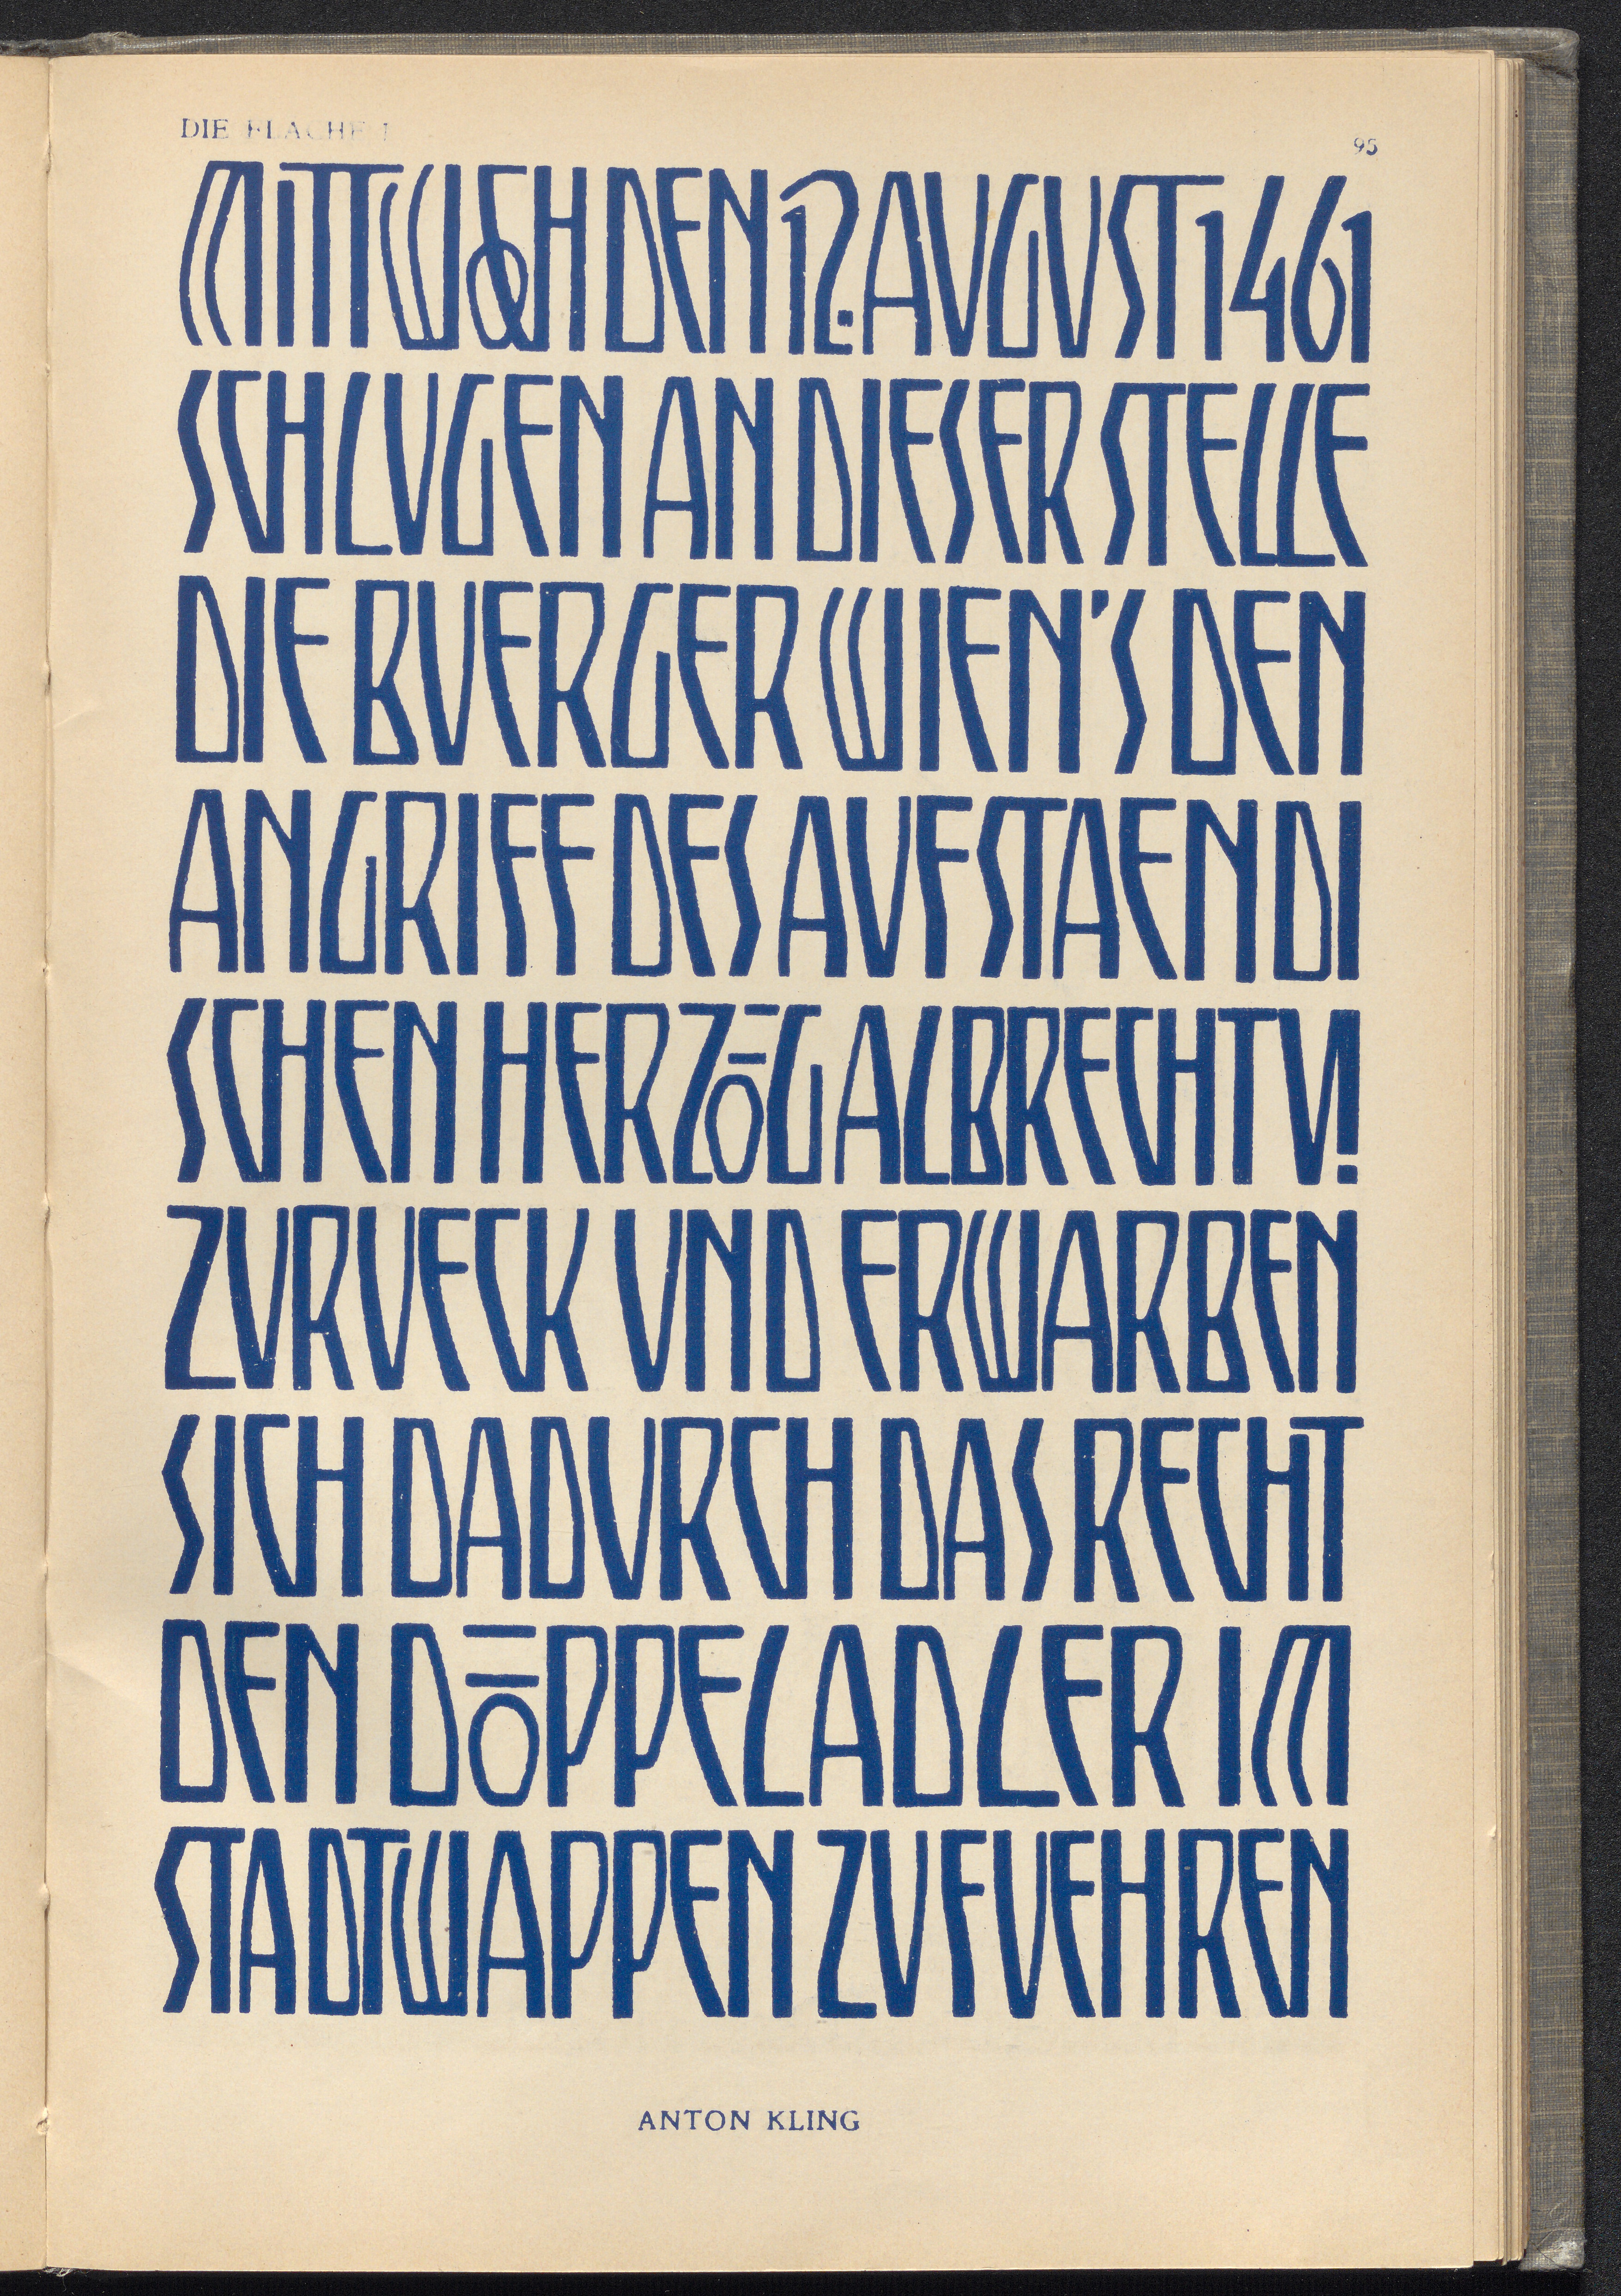 DIE FLÄCHE I
95
MITTWOCH DEN 12. AUGUST 1461
SCHLUGEN AN DIESER STELLE
DIE BUERGER WIEN'S DEN
ANGRIFF DES AUFSTAENDI
SCHEN HERZOG ALBRECHT VI
ZURUECK UND ERWARBEN
SICH DADURCH DAS RECHT
DEN DOPPELADLER IM
STADTWAPPEN ZU FUEHREN
ANTON KLING